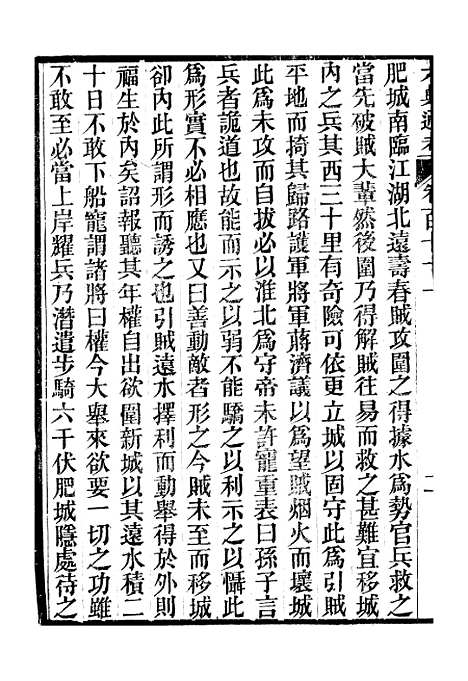 肥城南臨江湖北遠壽春賊攻圍之得據水為勢官兵救之
當先破賊大輩然後圍乃得解賊往易而救之甚難宜移城
內之兵其西三十里有奇險可依更立城以固守此為引賊
平地而掎其歸路護軍將軍蔣濟議以為望賊烟火而壞城
此為未攻而自拔必以淮北為守帝未許寵重表曰孫子言
兵者詭道也故能而示之以弱不能驕之以利示之以懾此
為形實不必相應也又曰善動敵者形之今賊未至而移城
卻內此所謂形而誘之也引賊遠水擇利而動舉得於外則
福生於內矣詔報聽其年權自出欲圍新城以其遠水積二
十日不敢下船寵謂諸將曰權今大舉來欲要一切之功雖
不敢至必當上岸耀兵乃潛遣步騎六千伏肥城隱處待之